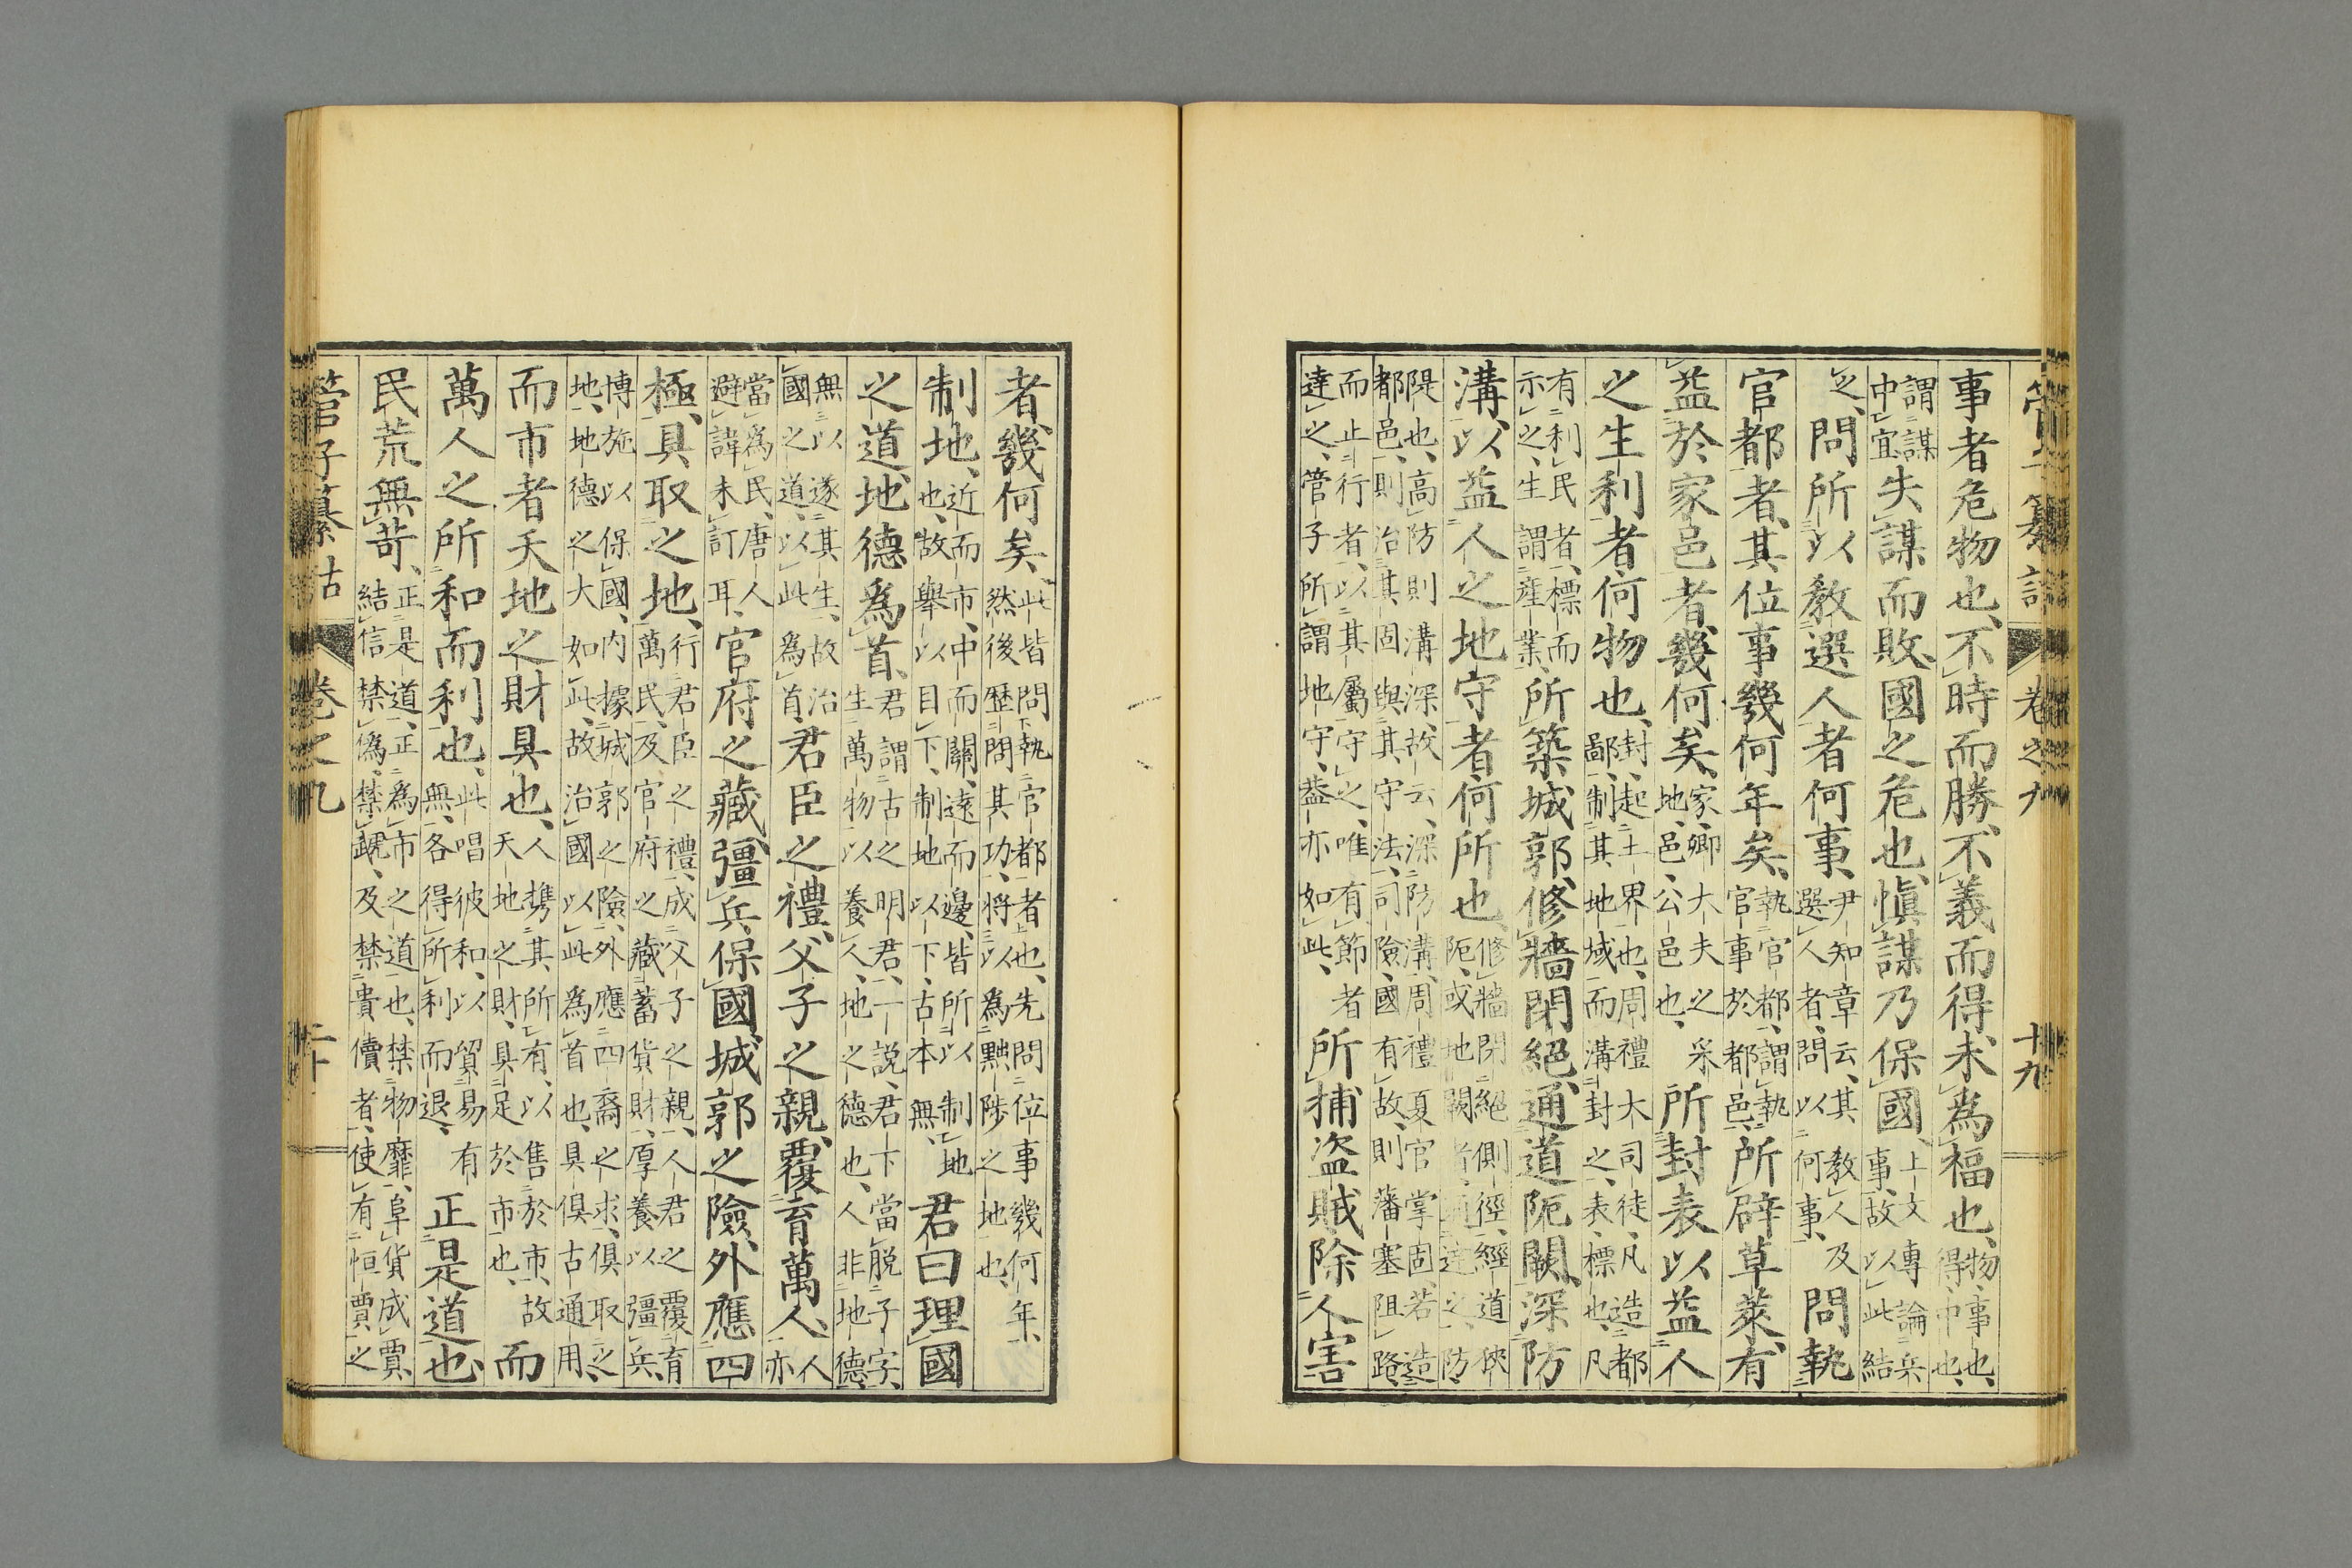 管子纂詁 卷之九 十九
事者危物也、不時而勝、不義而得、未爲福也、物、事也、得、中也、
謂謀中宜 失謀而敗、國之危也、愼謀乃保國、上文專論兵事、故以此結
之、問所以敎選人者何事、尹知章云、其敎人及選人者、問以何事、 問執
官都者、其位事幾何年矣、執官都、謂執官事於都邑、 所辟草萊、有
益於家邑者、幾何矣、家、卿大夫之采地、邑、公邑也、 所封表以益人
之生利者、何物也、封、起土界也、周禮大司徒、凡造都鄙、制其地域而溝封之、表、標也、凡
有利民者、標而示之、生謂產業、 所築城郭、修牆閉絕、通道阨闕、深防
溝、以益人之地守者、何所也、修牆閉絕側徑、經道狹阨、或地闕者、通達之、防、
隄也、高防則溝深、故云深防溝、周禮夏官掌固、若造都邑、則治其固與其守法、司險、國有故、則藩塞阻路、
而止行者、以其屬守之、唯有節者達之、管子所謂地守、蓋亦如此、 所捕盜賊、除人害
者、幾何矣、此皆問執官都者也、先問位事幾何年、然後歷問其功、將以爲黜陟之地也、
制地、近而市、中而關、遠而邊、皆所以制地也、故舉以目下、制地以下、古本無、 君曰、理國
之道、地德爲首、君謂古之明君、一說、君下當脫子字、生萬物以養人、地之德也、人非地德、
無以遂其生、故治國之道、以此爲首、 君臣之禮、父子之親、覆育萬人、人亦
當爲民、唐人避諱未訂耳、 官府之藏、彊兵保國、城郭之險、外應四
極、具取之地、行君臣之禮、成父子之親、人君之覆育萬民、及官府之藏蓄貨財、厚養以彊兵、
博施以保國、內據城郭之險、外應四裔之求、俱取之地、地德之大如此、故治國以此爲首也、具俱古通用、 而
而市者天地之財具也、人擕其所有、以售於市、故天地之財、具足於市也、 而
萬人之所和而利也、此唱彼和、以貿易有無、各得所利而退、 正是道也、
民荒無苛、正是道、正爲市之道也、禁物靡、阜貨成賈、結信禁僞、禁虣、及禁貴儥者、使有恒賈之
管子纂詁 卷之九 二十